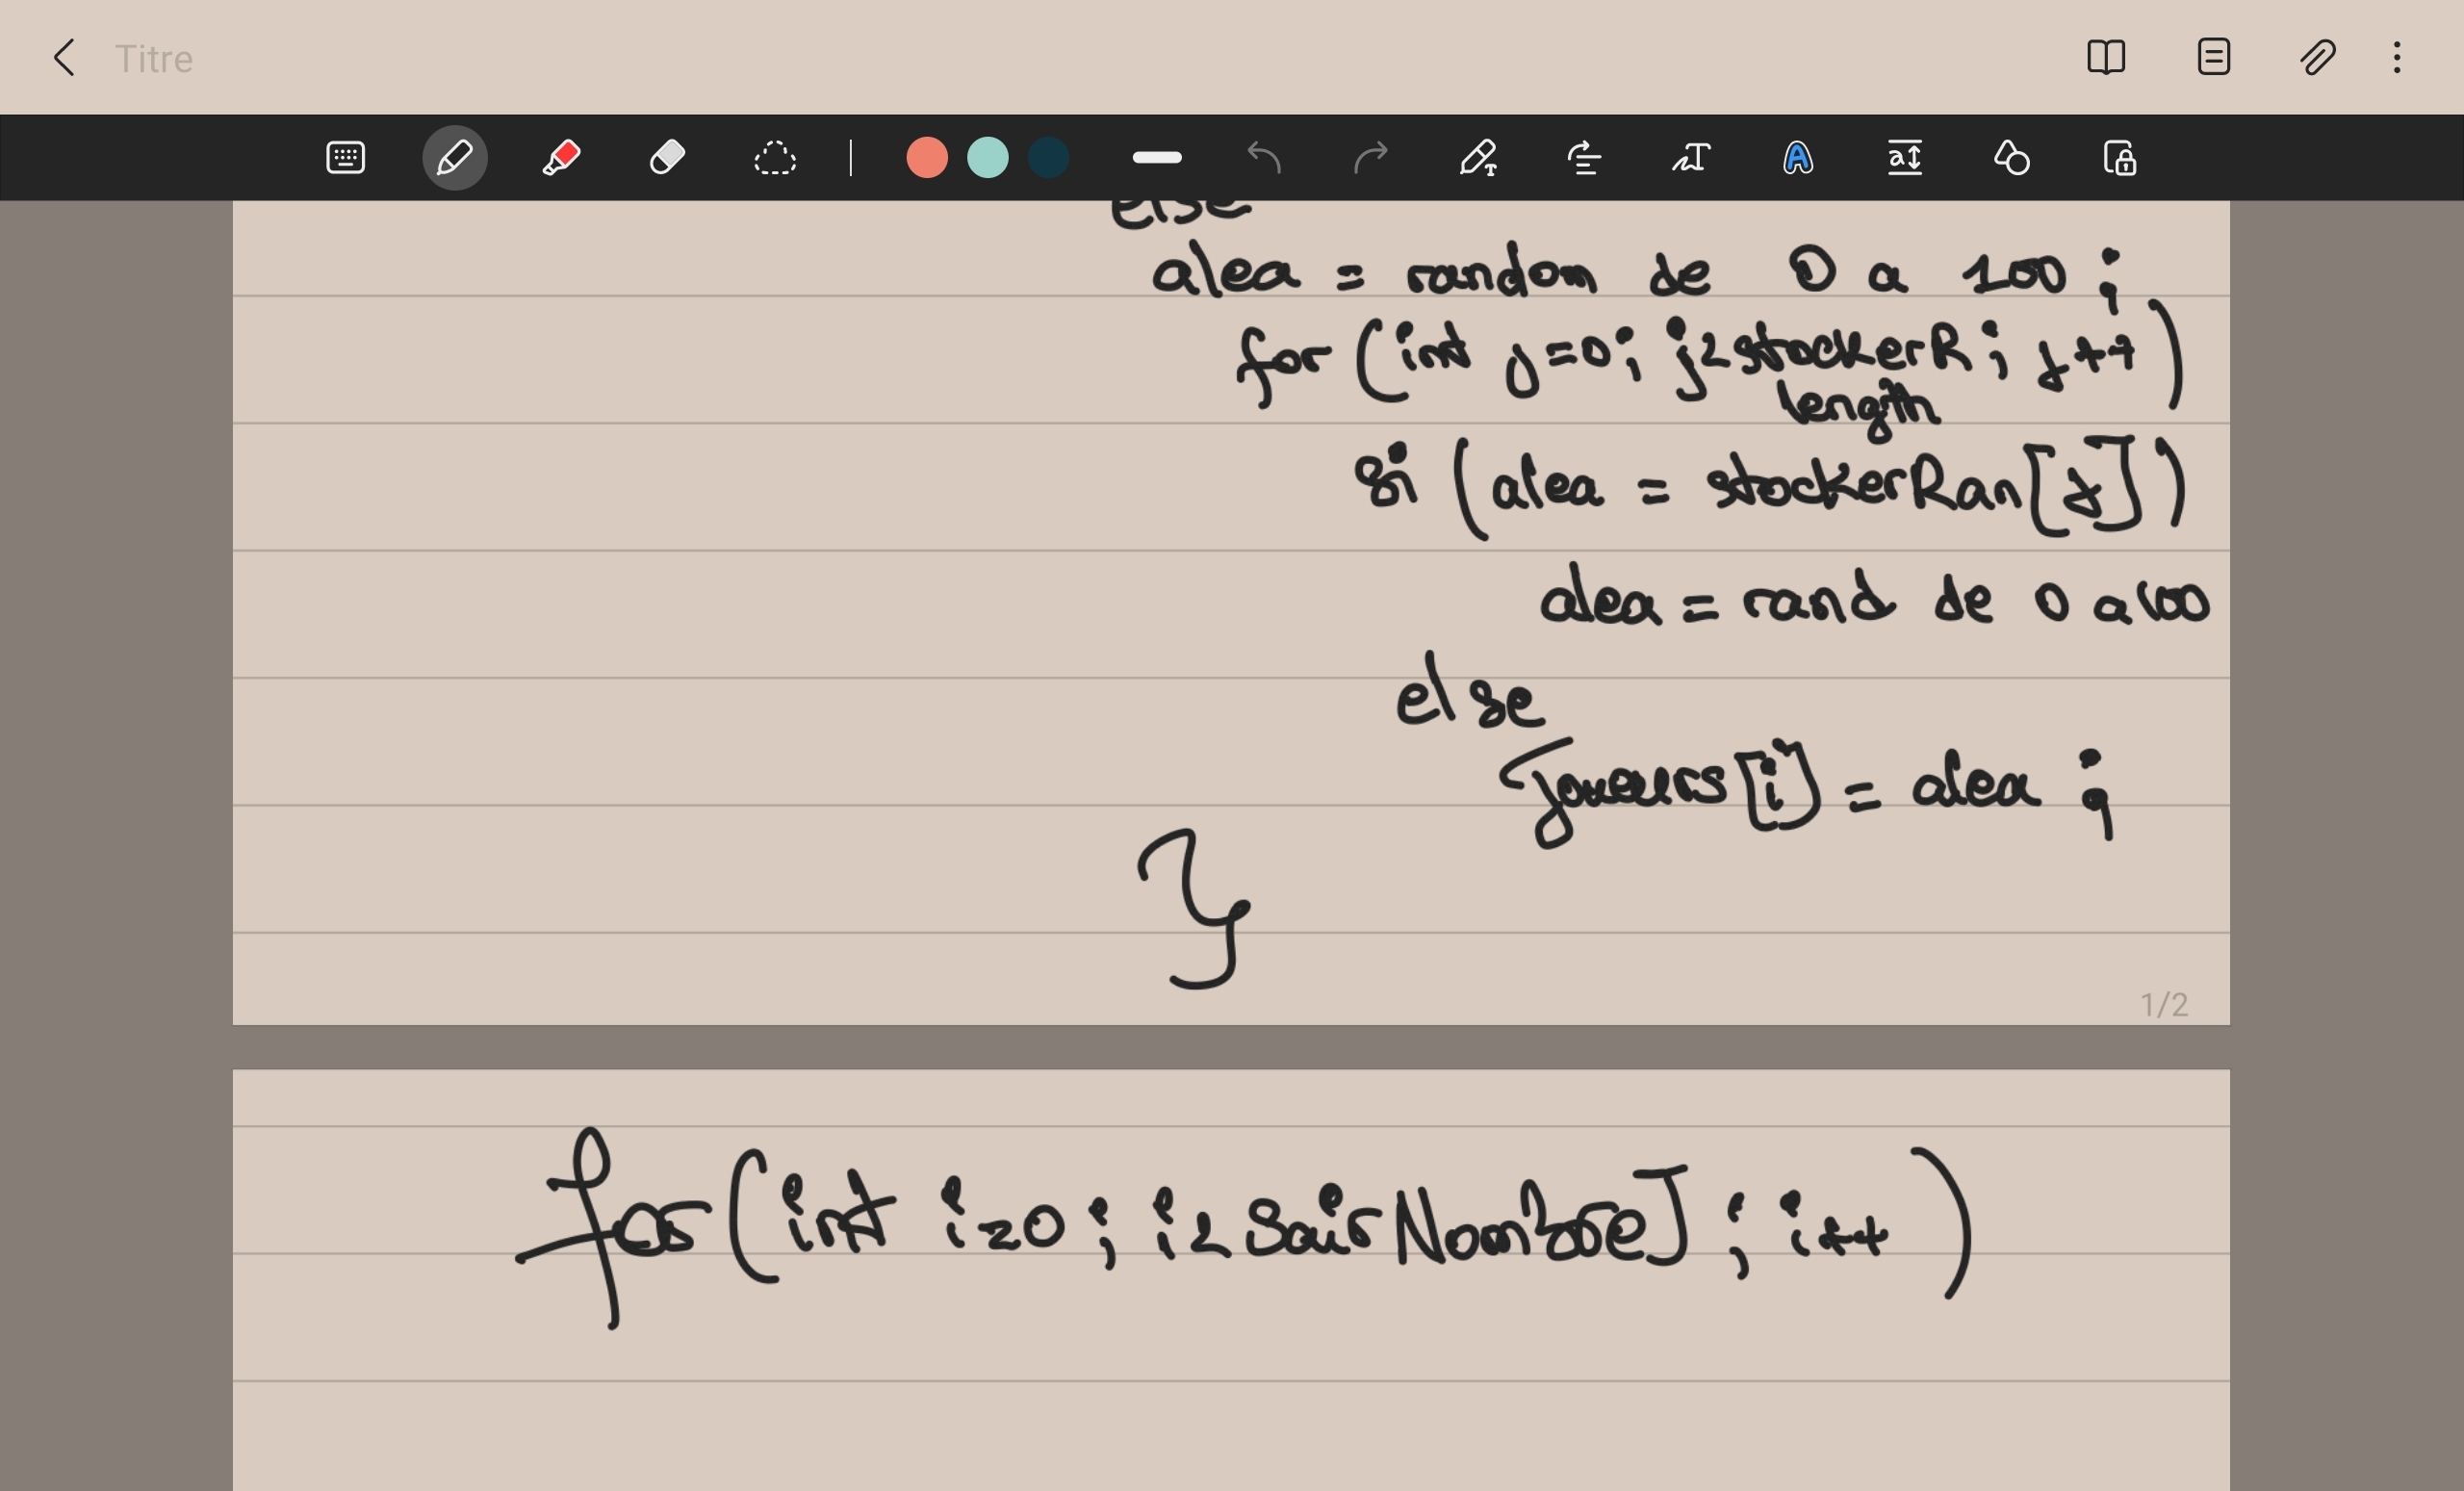 Titre
else
alea = random de 0 a 100 ;
for (int j=0; j<stockerR ; j++)
length
si (alea = stockerRan[j])
alea = rand de 0 a 100
else
joueurs[i] = alea ;
}
1/2
for (int i=0 ; i< ; i++)